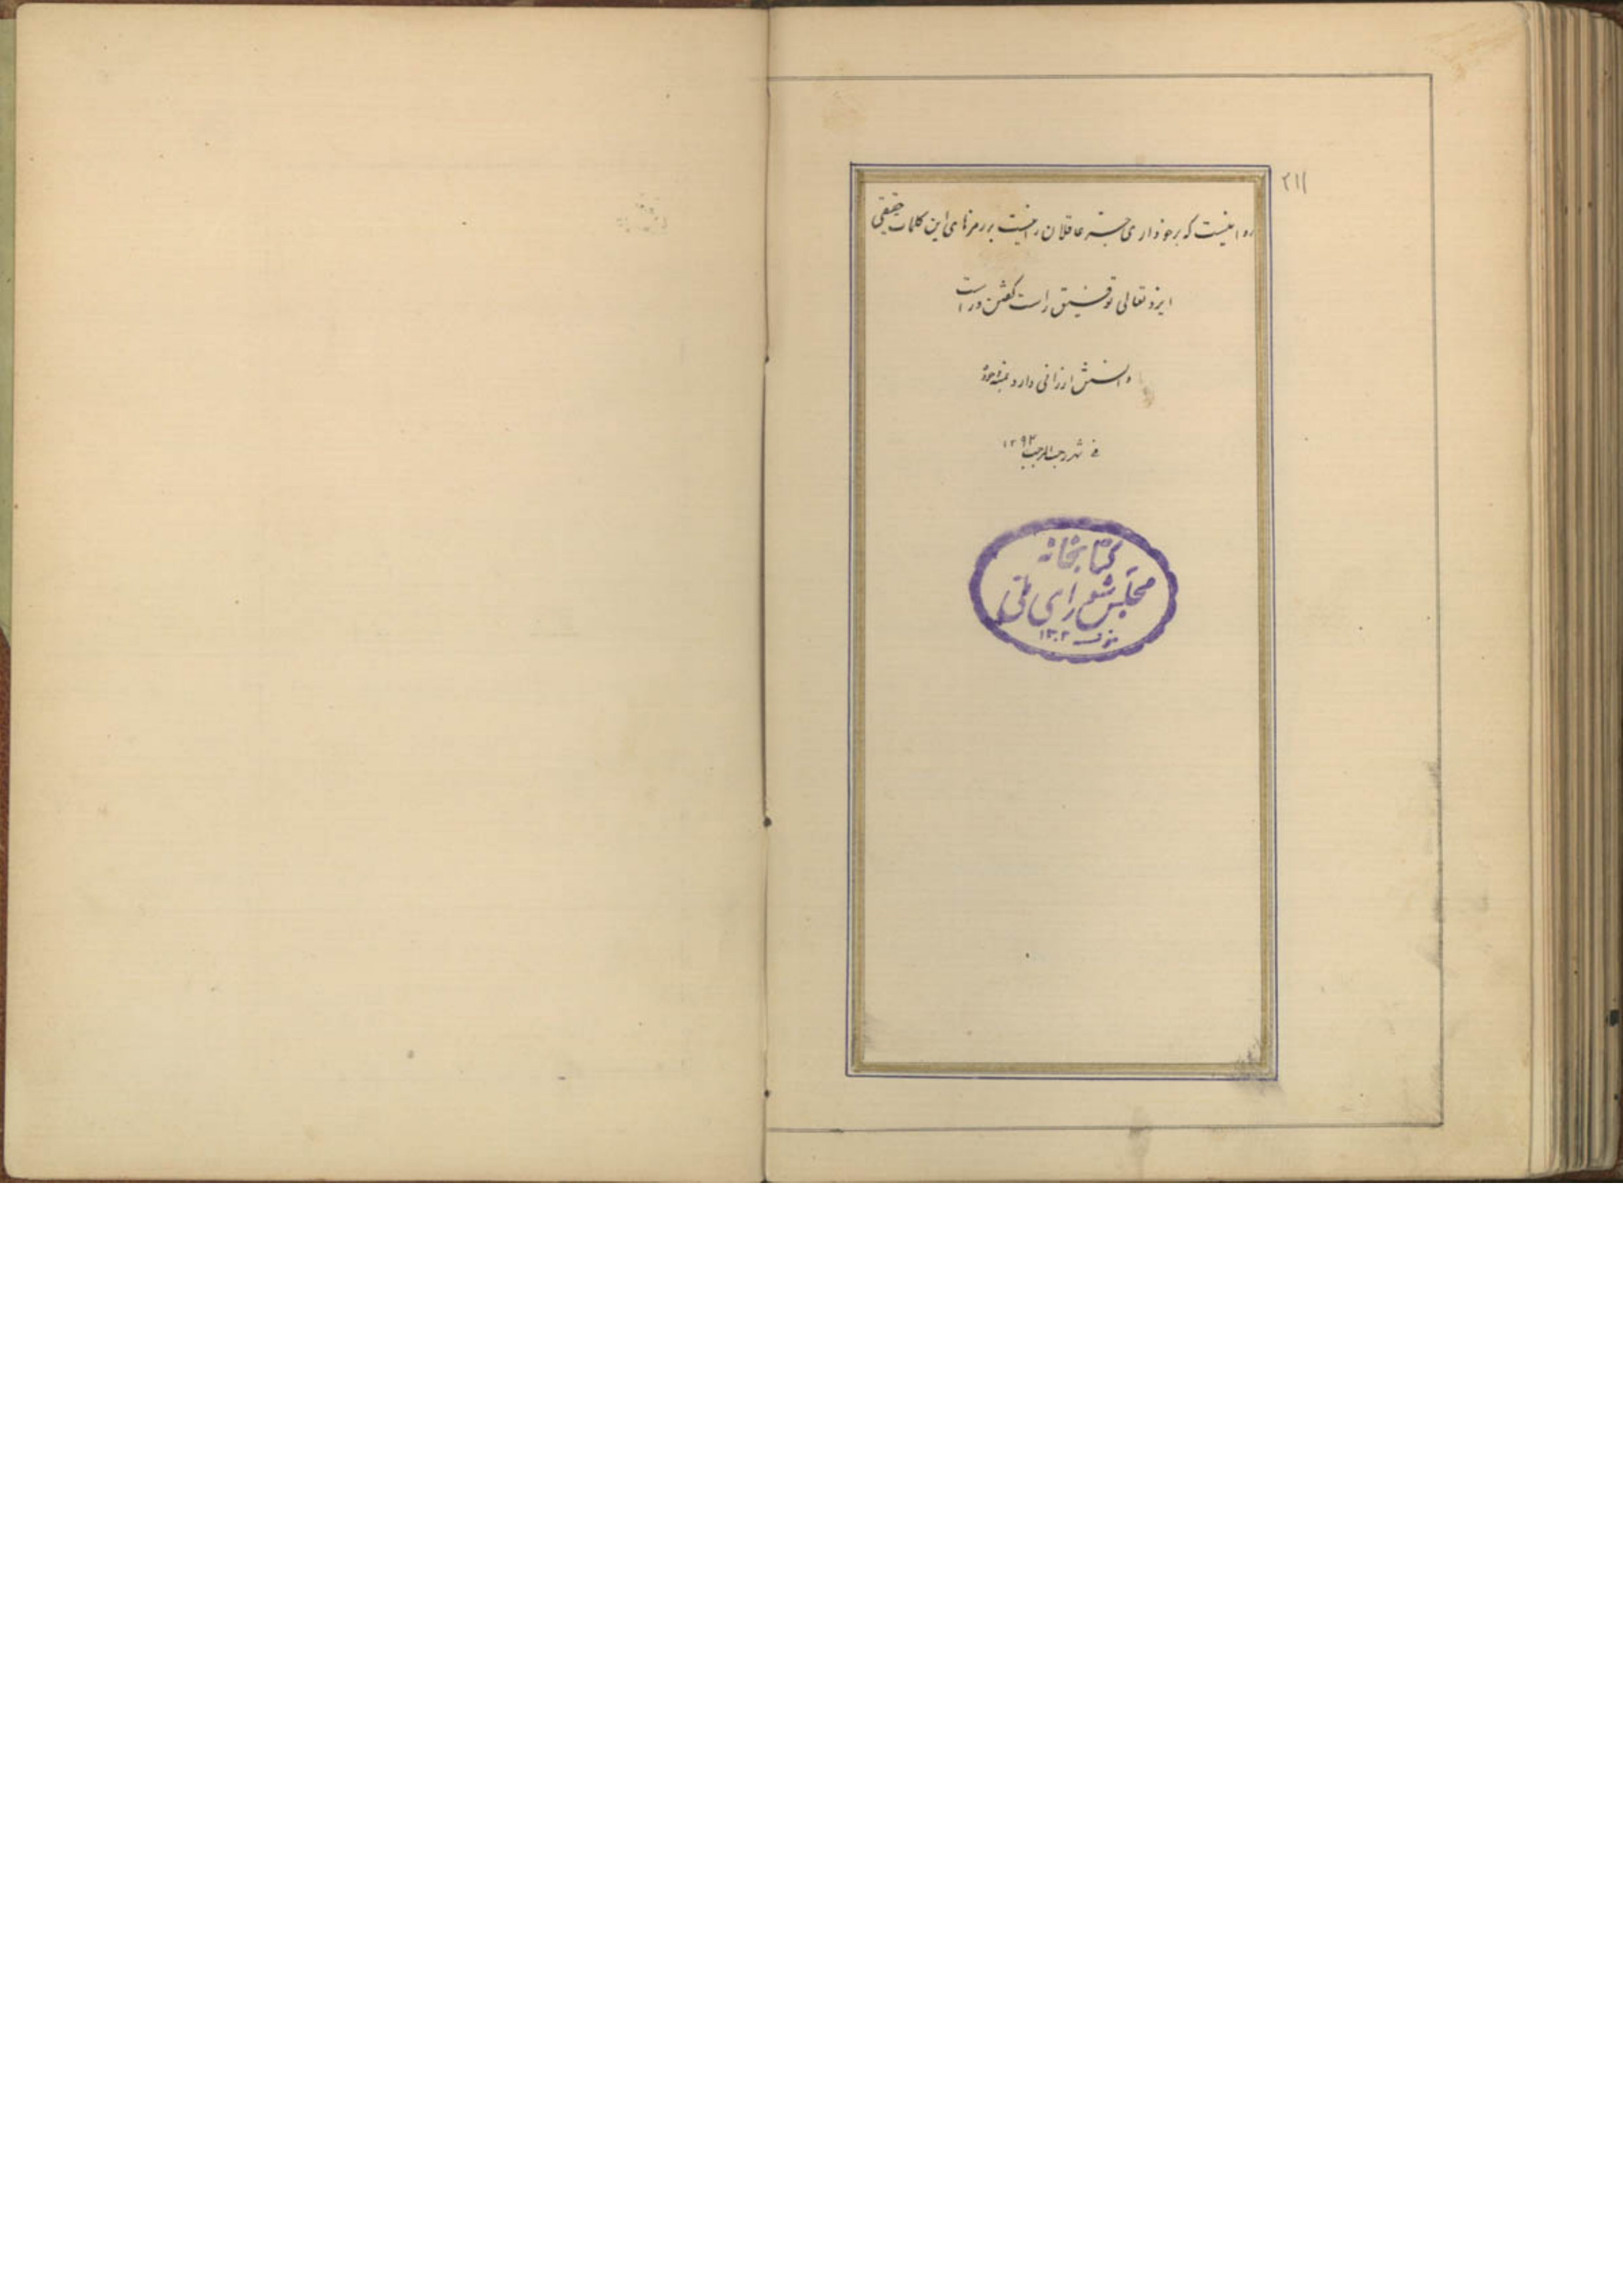 ۲۱۱
روا نیست که برخورداری جستن عاقلان را نیست بر رمزهای این کلمات حقیقی
ایزد تعالی توفیق راست گفتن و راست
دانستن ارزانی دارد بمنه وجوده
فی شهر رجب المرجب ۱۲۹۳
کتابخانه
مجلس شورای ملی
۱۳۰۲